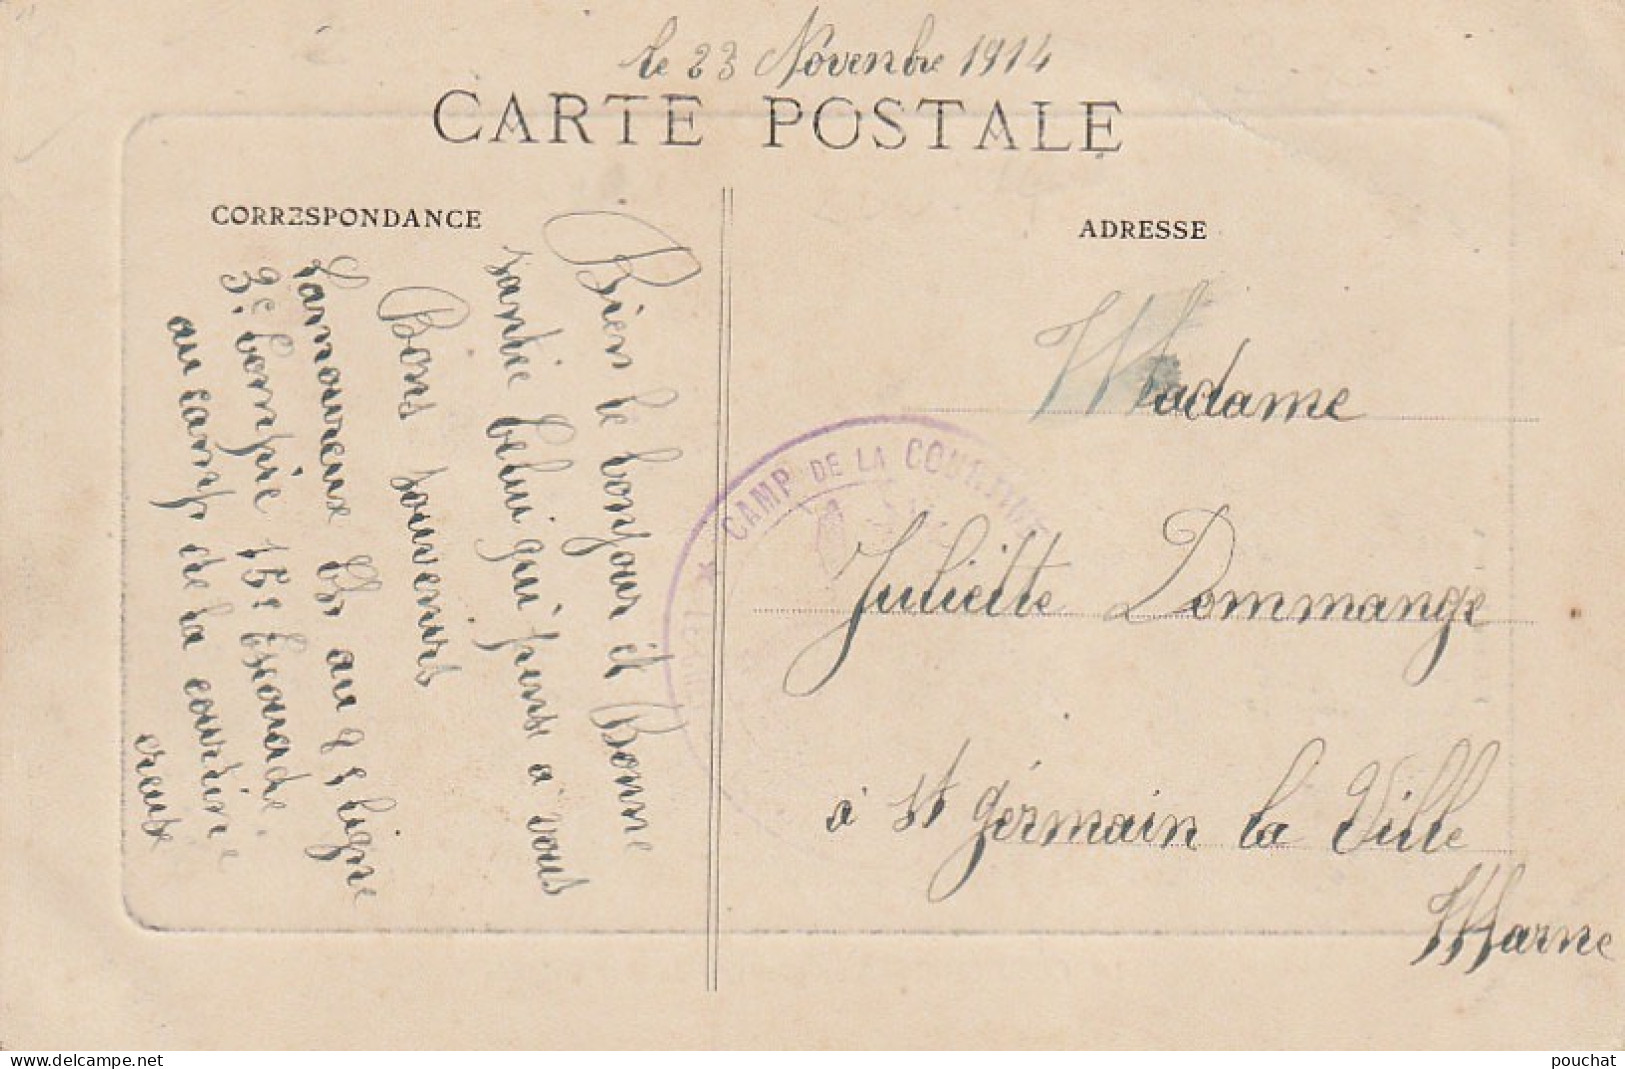 le 23 Novenbre 1914
CARTE POSTALE
CORRESPONDANCE
Bien le bonjour et Bonne
santie Celui qui pense a vous
Bons souvenirs
Lamoureux
au 8 e Ligne
3e Conpie 15e Escouade
au camp de la courtine
creuse
ADRESSE
Madame
Juliette Dommange
à St Germain la Ville
Marne
CAMP DE LA COURTINE
delcampe.net
pouchat